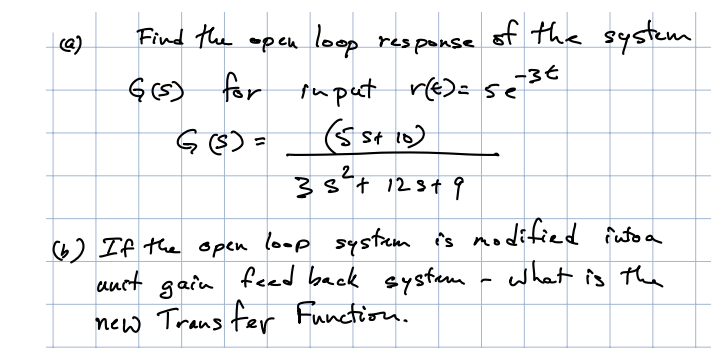 (a) Find the open loop response of the system
G(s) for input r(t) = 5e^-3t
G(s) = (5s+10)
3s^2 + 12s + 9
(b) If the open loop system is modified into a
unit gain feed back system - what is the
new Transfer Function.